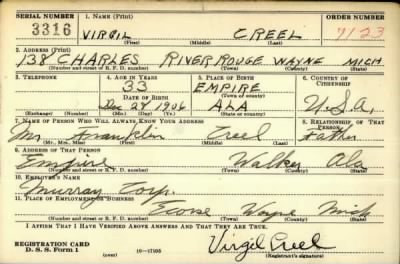 SERIAL NUMBER 1. NAME (Print) ORDER NUMBER
3316 VIRGIL CREEL 7123
(First) (Middle) (Last)
2. ADDRESS (Print)
138 CHARLES RIVER ROUGE WAYNE MICH
(Number and street or R. F. D. number) (Town) (County) (State)
3. TELEPHONE 4. AGE IN YEARS 5. PLACE OF BIRTH 6. COUNTRY OF CITIZENSHIP
33 EMPIRE
DATE OF BIRTH (Town or county)
Dec 28 1906 ALA U.S.A.
(Exchange) (Number) (Mo.) (Day) (Yr.) (State or country)
7. NAME OF PERSON WHO WILL ALWAYS KNOW YOUR ADDRESS 8. RELATIONSHIP OF THAT PERSON
Mr. Franklin Creel Father
(Mr., Mrs., Miss) (First) (Middle) (Last)
9. ADDRESS OF THAT PERSON
Empire Walker Ala
(Number and street or R. F. D. number) (Town) (County) (State)
10. EMPLOYER'S NAME
Murray Corp.
11. PLACE OF EMPLOYMENT OR BUSINESS
Ecorse Wayne Mich
(Number and street or R. F. D. number) (Town) (County) (State)
I AFFIRM THAT I HAVE VERIFIED ABOVE ANSWERS AND THAT THEY ARE TRUE.
REGISTRATION CARD
D. S. S. Form 1 (over) 16—17105 Virgil Creel
(Registrant's signature)